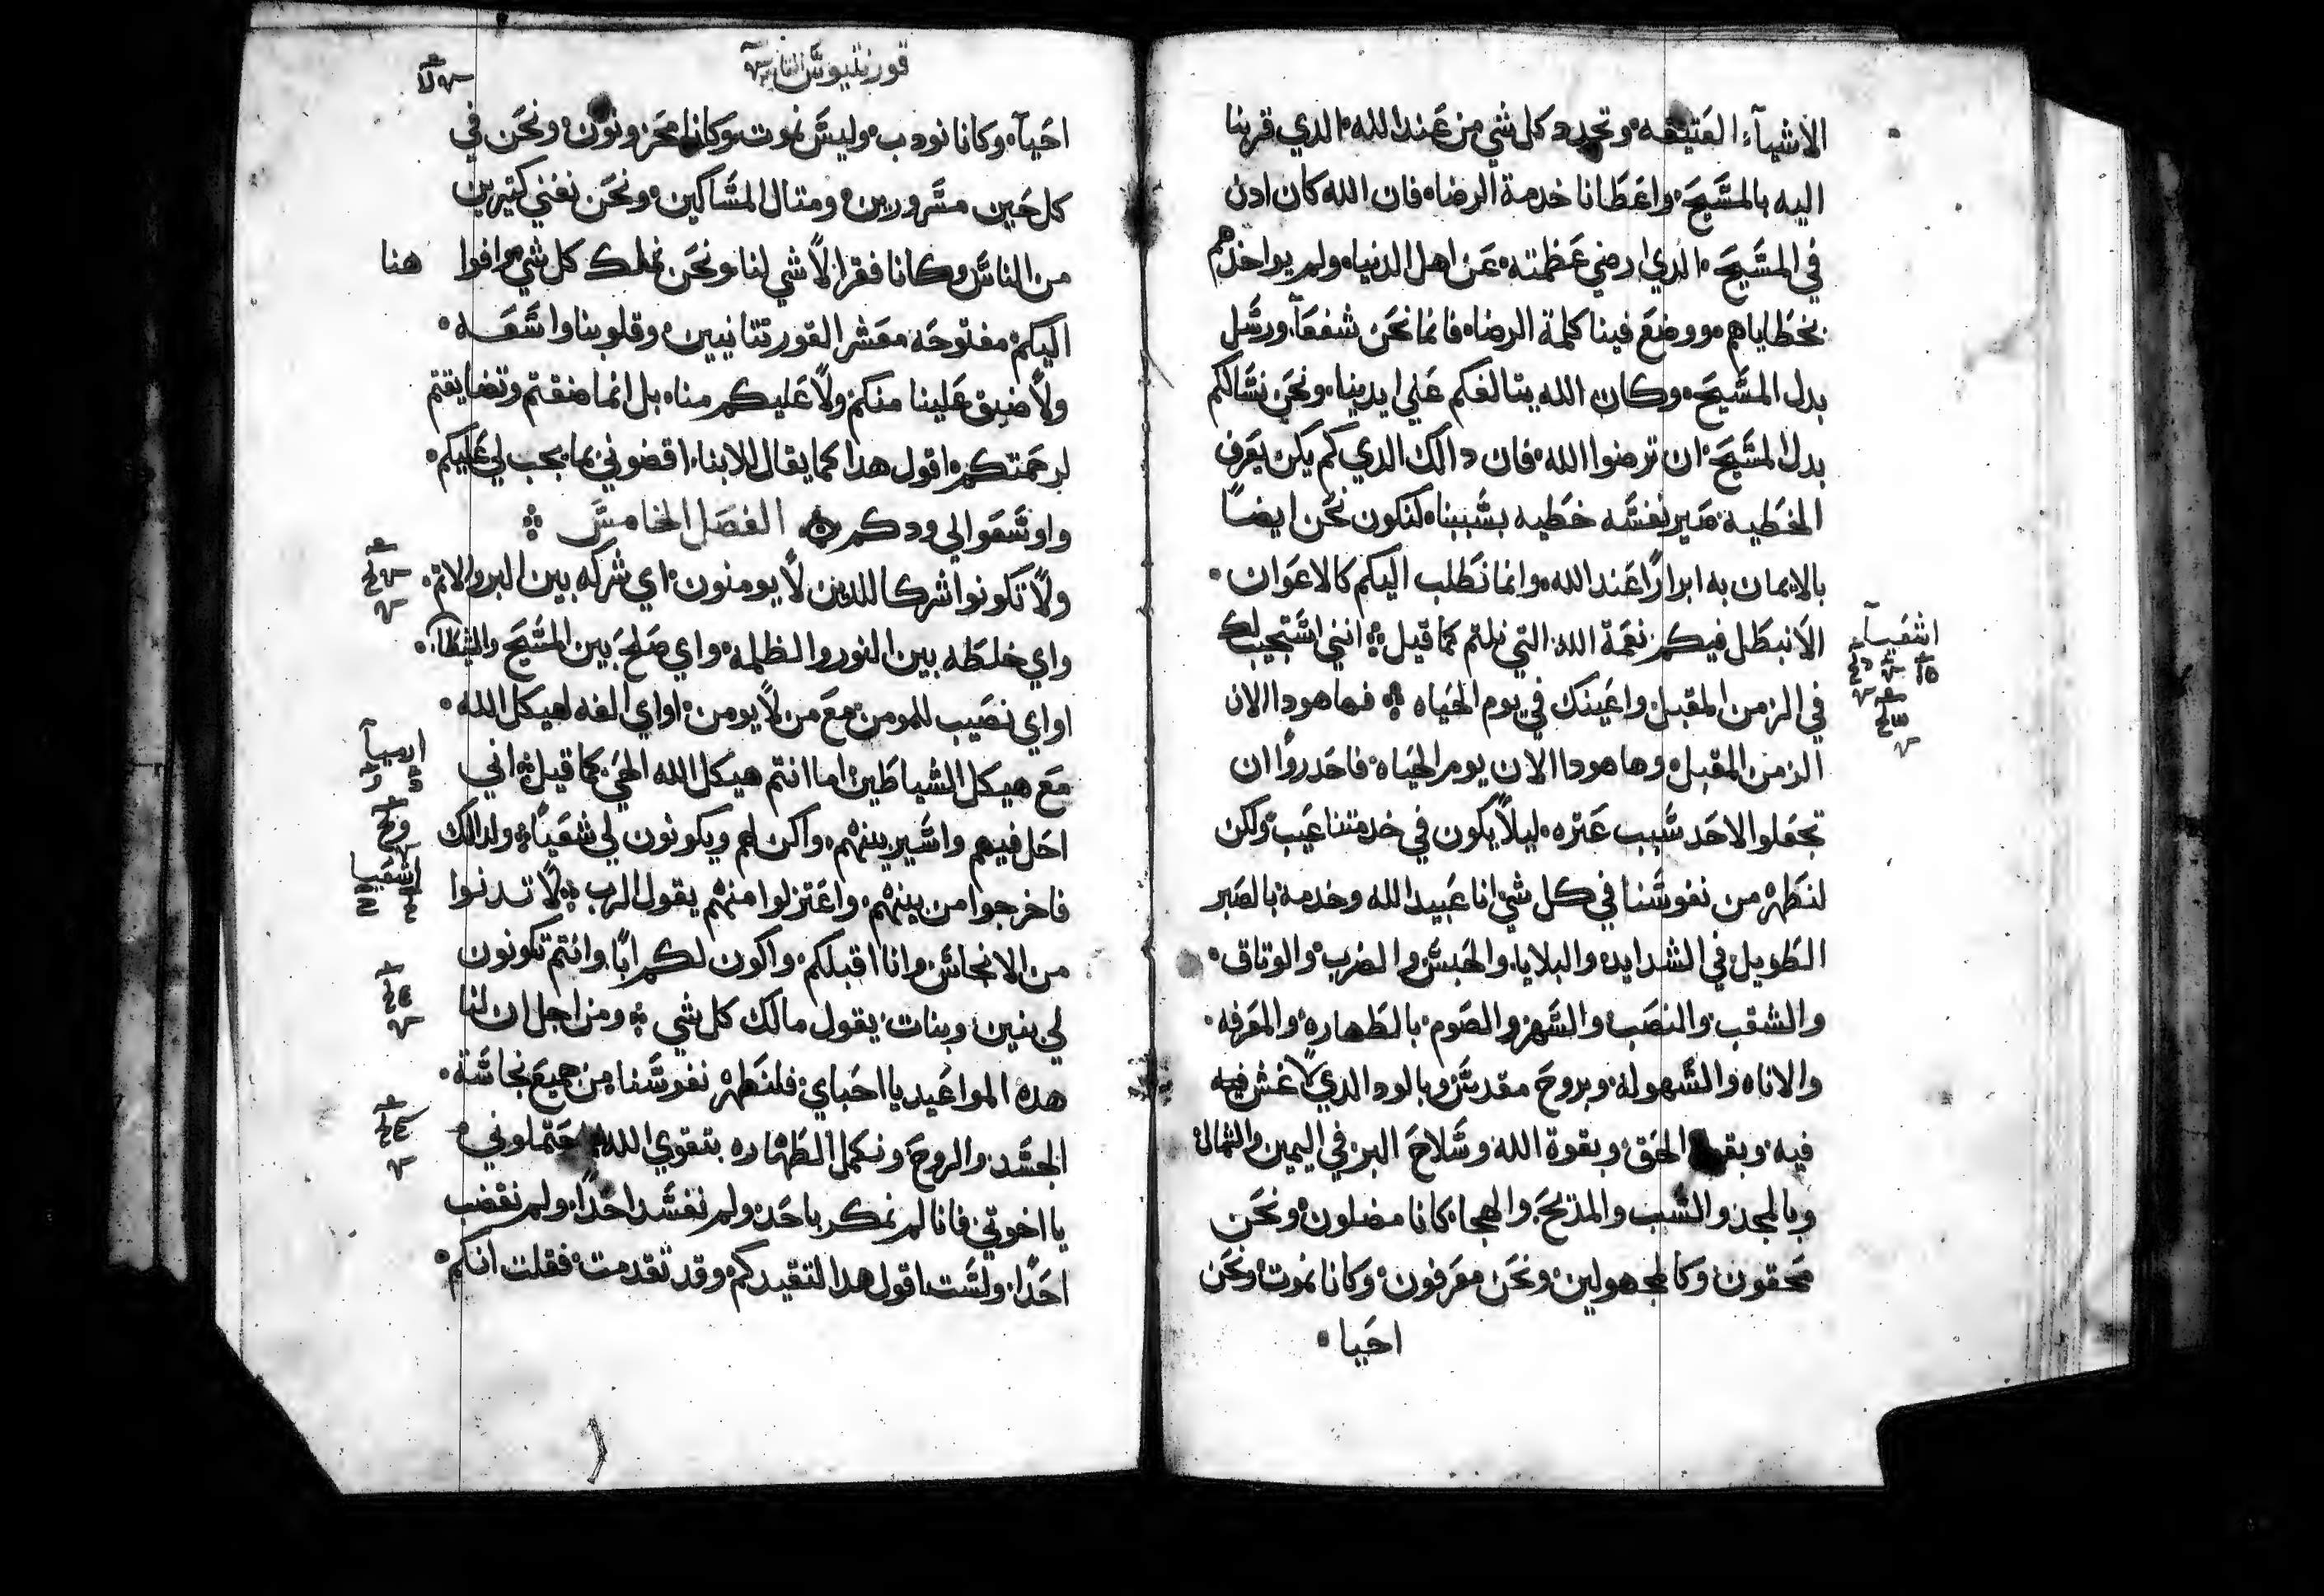 الاشيآء العتيقه وتجدد كل شي من عند الله الدي قربنا
اليه بالمسيح واعطانا خدمة الرضا فان الله كان ادن
في المسيح الدي ارضي عظمته عن اهل الدنيا ولم يواخدهم
بخطاياهم ووضع فينا كلمة الرضا فانما نحن شفعآ ورسل
بدل المسيح وكان الله يتالفكم علي ايدينا ونحن نسالكم
بدل المسيح ان ترضوا الله فان دالك الدي لم يكن يعرف
الخطيه صير نفسه خطيه بسببنا لنكون نحن ايضاً
بالايمان به ابراراً عند الله وانما نطلب اليكم كالاعوان
الا تبطل فيكم نعمة الله التي نلتم كما قيل انني استجيب لك
في الزمن المقبل واعينك في يوم الحياه فها هودا الان
الزمن المقبل وها هودا الان يوم الحياه فاحدروا ان
تجعلوا لاحد سبب عتره ليلا يكون في خدمتنا عيب ولكن
لنطهر من نفوسنا في كل شي انا عبيد الله وخدمه بالصبر
الطويل في الشدايد والبلايا والحبس والضرب والوتاق
والشقب والنصب والسهر والصوم بالطهاره والمعرفه
والاناه والسهوله وبروح مقدس وبالود الدي لا غش فيه
فيه وبقول الحق وبقوة الله وسلاح البر في اليمين والشمال
وبالمجد والسب والمديح والهجا كانا مضلون ونحن
محقون وكالمجهولين ونحن معرفون وكانا نموت ونحن
احيا
اشعيآ
قورنتيوس التانيه
احيآ وكانا نودب وليس نموت وكانا محزونون ونحن في
كل حين مسرورين ومتال المساكين ونحن نغني كتيرين
من الناس وكانا فقرا لا شي لنا ونحن نملك كل شي وافوا هنا
اليكم مفتوحه معشر القورنتانيين وقلوبنا واسعه
ولا ضيق علينا منكم ولا عليكم منا بل انما ضقتم وتضايقتم
لرحمتكم اقول هدا كما يقال للابنا اقضوني بما يجب لي عليكم
واوسعوا لي ودكم الفصل الخامس
ولا تكونوا شركا للدين لا يومنون اي شركه بين البر والاتم
واي خلطه بين النور والظلمه واي صلح بين المسيح والشيطان
او اي نصيب للمومن مع من لا يومن او اي الفه لهيكل الله
مع هيكل الشياطين اما انتم هيكل الله الحي كما قيل اني
احل فيهم واسير بينهم واكن لهم ويكونون لي شعباً ولدالك
فاخرجوا من بينهم واعتزلوا منهم يقول الرب لا تدنوا
من الانجاس وانا اقبلكم واكون لكم اباً وانتم تكونون
لي بنين وبنات يقول مالك كل شي ومن اجل ان لنا
هده المواعيد يا احباي فلنطهر نفوسنا من جميع نجاسة
الجسد والروح ونكمل الطهاره بتقوي الله احتملوني
يا اخوتي فانا لم نمكر باحد ولم نفسد احداً ولم نغضب
احداً ولست اقول هدا لتقيدكم وقد تقدمت فقلت انكم
ارميآ
اشعيا